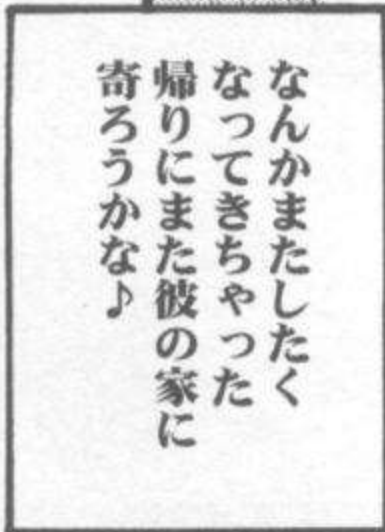 なんかまたしたく
なってきちゃった
帰りにまた彼の家に
寄ろうかな♪